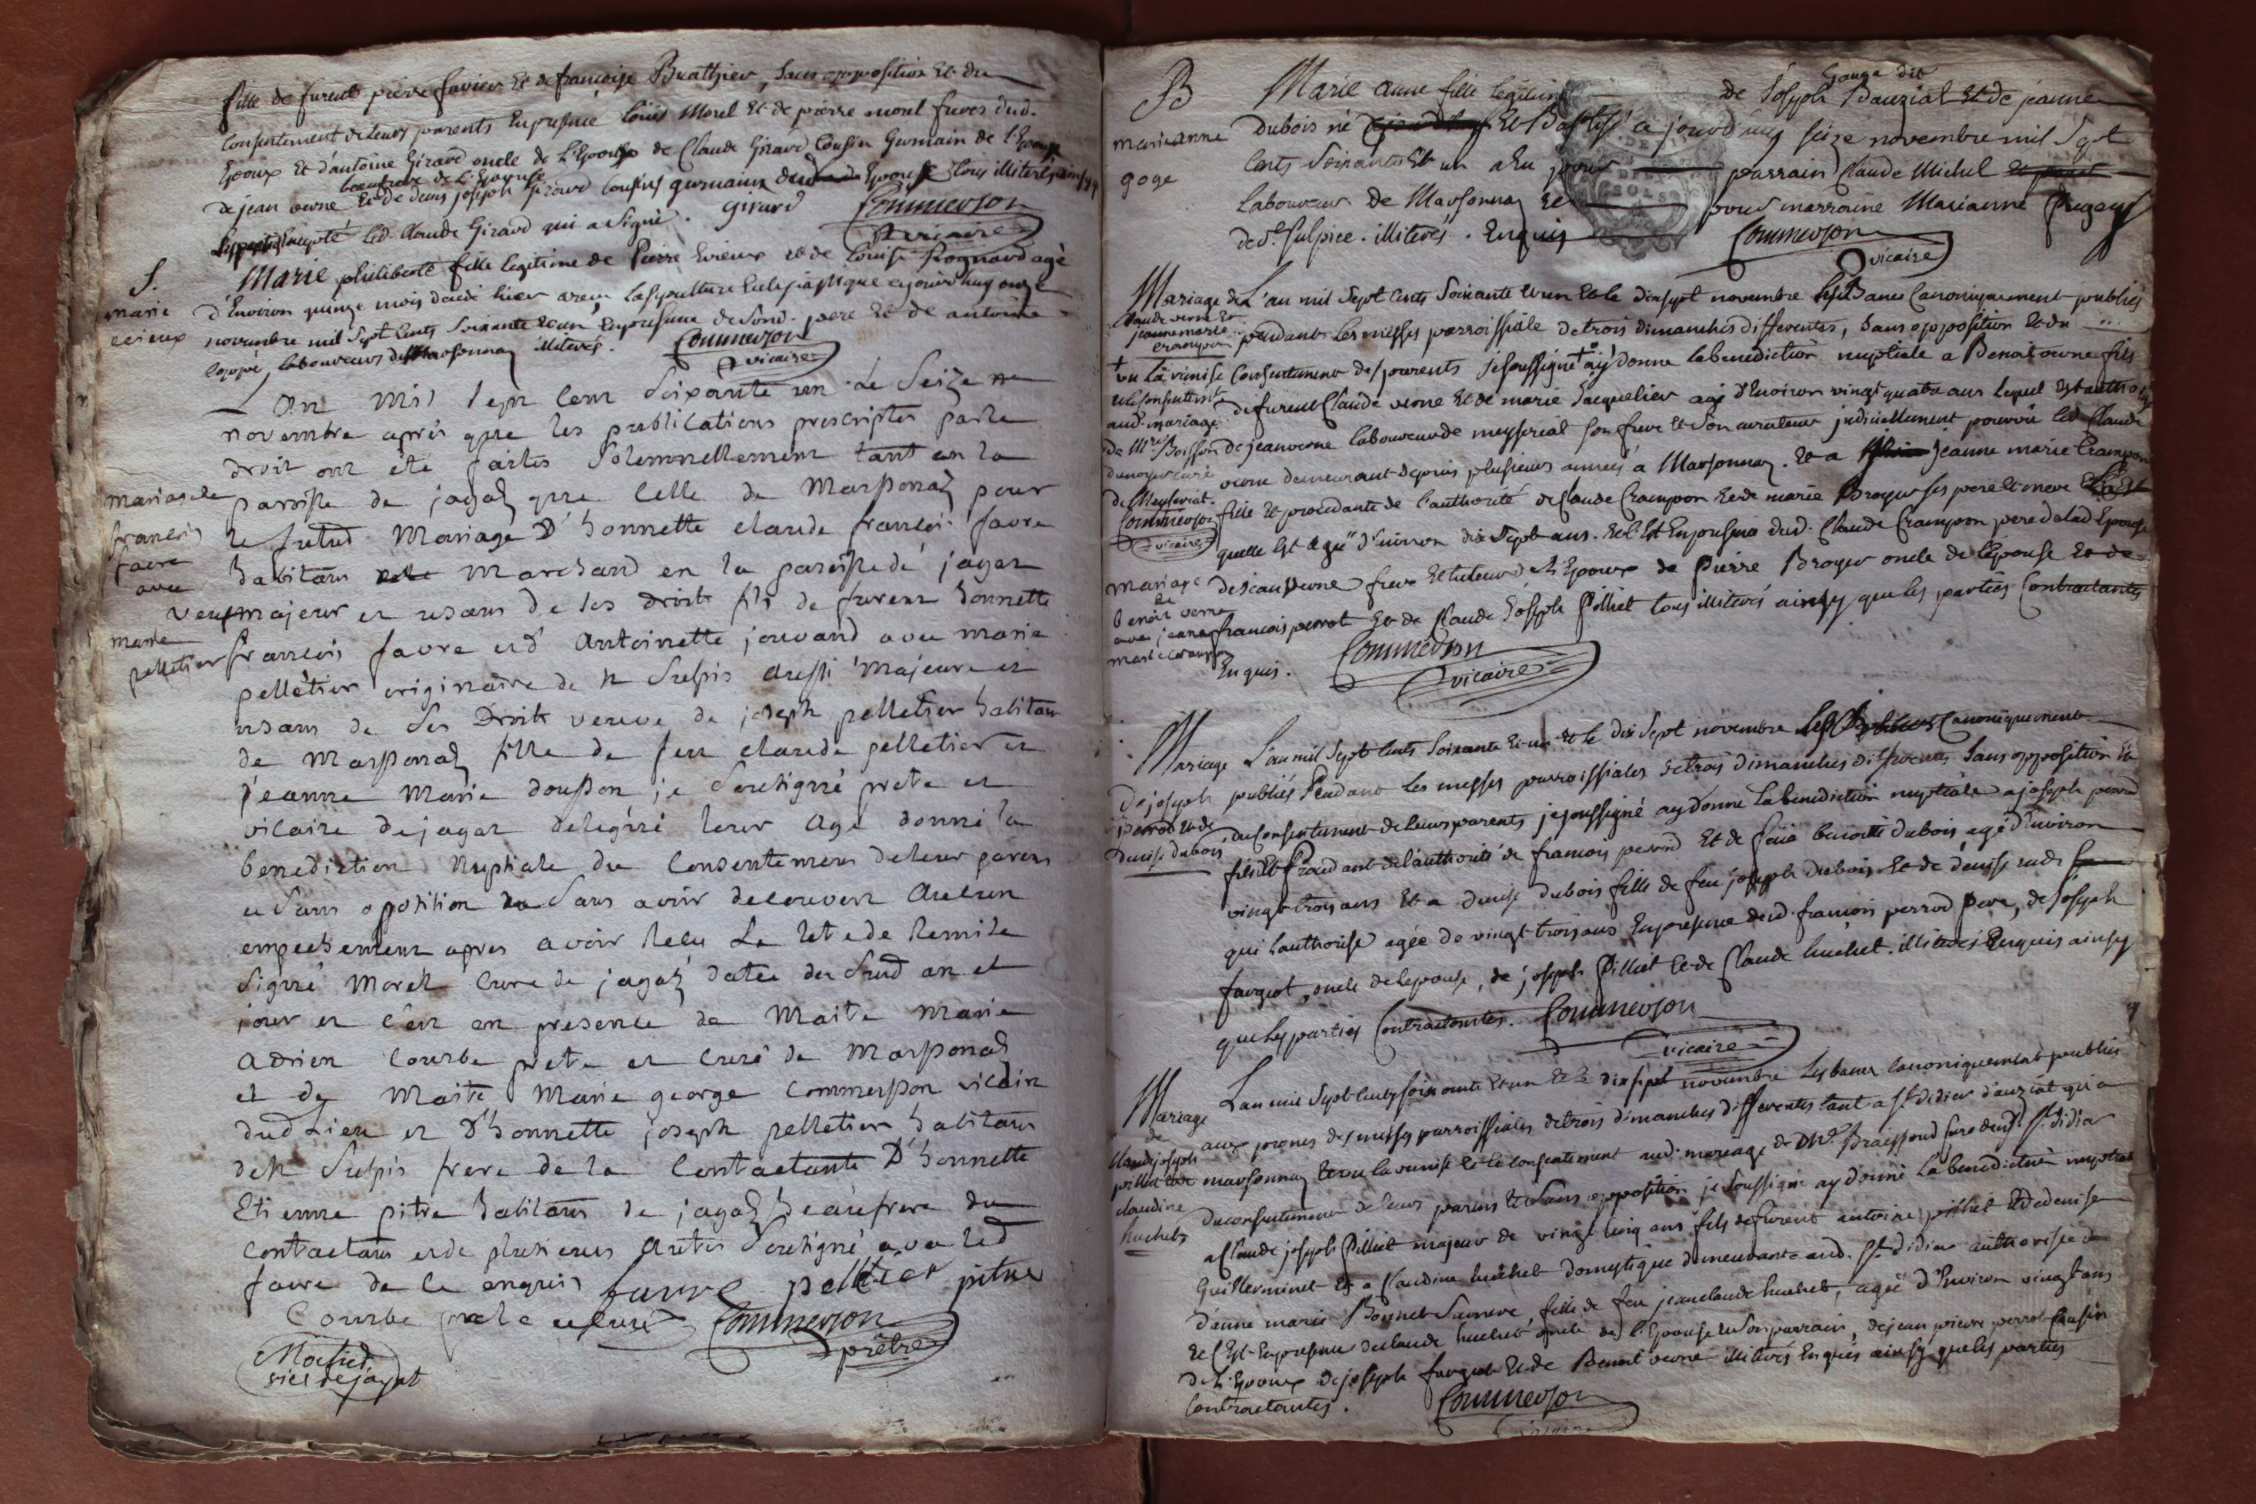 fille de furent pierre favier et de francoise Buathier, sans opposition et du
Consentement de leurs parents En presence louis Morel et de pierre morel freres dud.
Epoux et d'antoine Girard oncle de L'Epouse de Claude Girard Cousin Germain de l'Epouse
beaufrere de L'Epouse
de jean verne et de denis joseph Girard Cousins germains Epouse tous illiterés
Excepté led. Claude Girard qui a signé. Girard Commerson
vicaire
S.
marie
evieux
Marie philiberte fille legitime de Pierre Evieux et de Louise Rognard agé
d'Environ quinze mois decedé hier a reçu la sepulture Ecclesiastique ajourd'huy onze
novembre mil sept cents soixante et un, En presence de son d. pere et de antoine
laboureurs de Marsonnay illiterés. Commerson
vicaire
L'an mil sept cent soixante un Le Seize
novembre après que les publications prescriptes par le
droit ont été faites Solemnellement tant en la
mariage de
paroisse de jayat que Celle de Marsonas pour
francois
le futud Mariage D'honnette claude francois favre
favre
habitant Marchand en la paroisse de jayat
avec
veuf majeur et usant de ses droits fils de furent honnette
marie
francois favre et d'Antoinette jouvand avec marie
pelletier
pelletier originaire de st Sulpis Aussi Majeure et
usant de Ses Droits veuve de joseph pelletier habitant
de Marsonas fille de feu claude pelletier et
jeanne Marie Dousson je Soussigné prete et
vicaire de jayat delegué leur ayé donné la
benediction Nuptiale du Consentement de leur parens
et Sans opotition Sans avoir decouvert Auccun
empechement apres avoir recu La let e de Remise
Signé Morel Curé de jayat datée du Sud an et
jour et C'est en presence de Maitre Marie
Adrien Courbe prete et Curé de Marsonas
et de Maitre Marie george Commerson vicaire
dud Lieu et D'honnette joseph pelletier habitant
de st Sulpis frere de la Contactante D'honnette
Etienne pitre habitant de jayat beaufrere du
Contactant et de plusieurs Autres Soussigné avec led
favre de Ce enquis favre pelletier pitre
Courbe prete et curé Commerson
prêtre
Mochet
vic. de jayat
B
marieanne
goge
Gauge dit
Marie anne fille legitime de Joseph Dauziat et de jeanne
Dubois né Et Baptisé ajourd'huy seize novembre mil Sept
Cents Soixante Et un a Eu pour parrain Claude Michel
laboureur de Marsonnay et pour marraine Marianne
de St. Sulpice. illiterés. Enquis Commerson
vicaire
Mariage de
Claude verne et
jeanne marie
crampon
L'an mil sept Cents Soixante et un Et le dixsept novembre les Bans Canoniquement publiés
pendant les messes parroissiale de trois dimanches differentes, sans opposition et du
Consentement des parents je soussigné + ay donné la benediction nuptiale a Benoit verne fils
+ vu la remise
et le consentement
aud. mariage
de Mre. Boisson
curé
de Meyseriat.
Commerson
vicaire
de furent Claude verne Et de marie Jacquelier agé d'Environ vingt quatre ans lequel est authorisé
de jean verne laboureur de meyseriat son frere et son curateur judiciellement pourvu led Claude
verne demeurant depuis plusieurs années a Marsonnay. Et a jeanne marie Crampon
fille Et procedante de l'authorité de Claude Crampon et de marie Broyer ses pere et mere
quelle Est agée d'Environ dix sept ans. Et C'est En presence dud. Claude Crampon pere de lad Epouse
mariage
de
benoit verne
avec jeanne
marie crampon
de jean verne frere Et tuteur de L'Epoux de Pierre Broyer oncle de l'Epouse Et de
francois perrot Et de Claude Joseph Pilliet tous illiterés ainsy que les parties Contractantes
Enquis. Commerson
vicaire
Mariage
de joseph
perrod et de
Denise dubois
L'an mil Sept Cents Soixante Et un Et le dix Sept novembre Canoniquement
publiés Pendant les messes parroissiales de trois dimanches differentes sans opposition Et
du Consentement de leurs parents je soussigné ay donné la benediction nuptiale a joseph perrod
fils Et Procedant de l'authorité de francois perrod Et de benoite dubois agé d'Environ
vingt trois ans Et a Denise dubois fille de feu joseph dubois Et de denise
qui l'authorise agée de vingt trois ans En presence dud. francois perrod pere, de Joseph
fargeot, oncle de l'epouse, de joseph Pilliet Et de Claude huchet. illiterés Enquis ainsy
que les parties Contractantes. Commerson
vicaire
Mariage
de
Claude joseph
pilliet et de
claudine
huchet
L'an mil Sept Cents soixante Et un Et le dix sept novembre les bans canoniquement publiés
aux prones des messes parroissiales de trois dimanches differentes tant a St. Didier d'auziat qu'a
marsonnay Et vu la remise Et le Consentement aud. mariage de Mre. Braissoud Curé dud. St. Didier
du consentement de leurs parens et sans opposition je soussigné ay donné la benediction nuptiale
a Claude joseph Pilliet majeur de vingt cinq ans fils de furent antoine pilliet Et de denise
Guillerminet Et a Claudine huchet domestique demeurante aud. St. Didier authorisée de
d'anne marie Bonnet sa mere, fille de feu jean claude huchet, agée d'Environ vingt ans
Et C'Est En presence de claude huchet oncle de l'Epouse et son parrain, de jean pierre perrot Cousin
de L'Epoux de joseph fargeot Et de Benoit verne illiterés Enquis ainsy que les parties
Contractantes. Commerson
vicaire